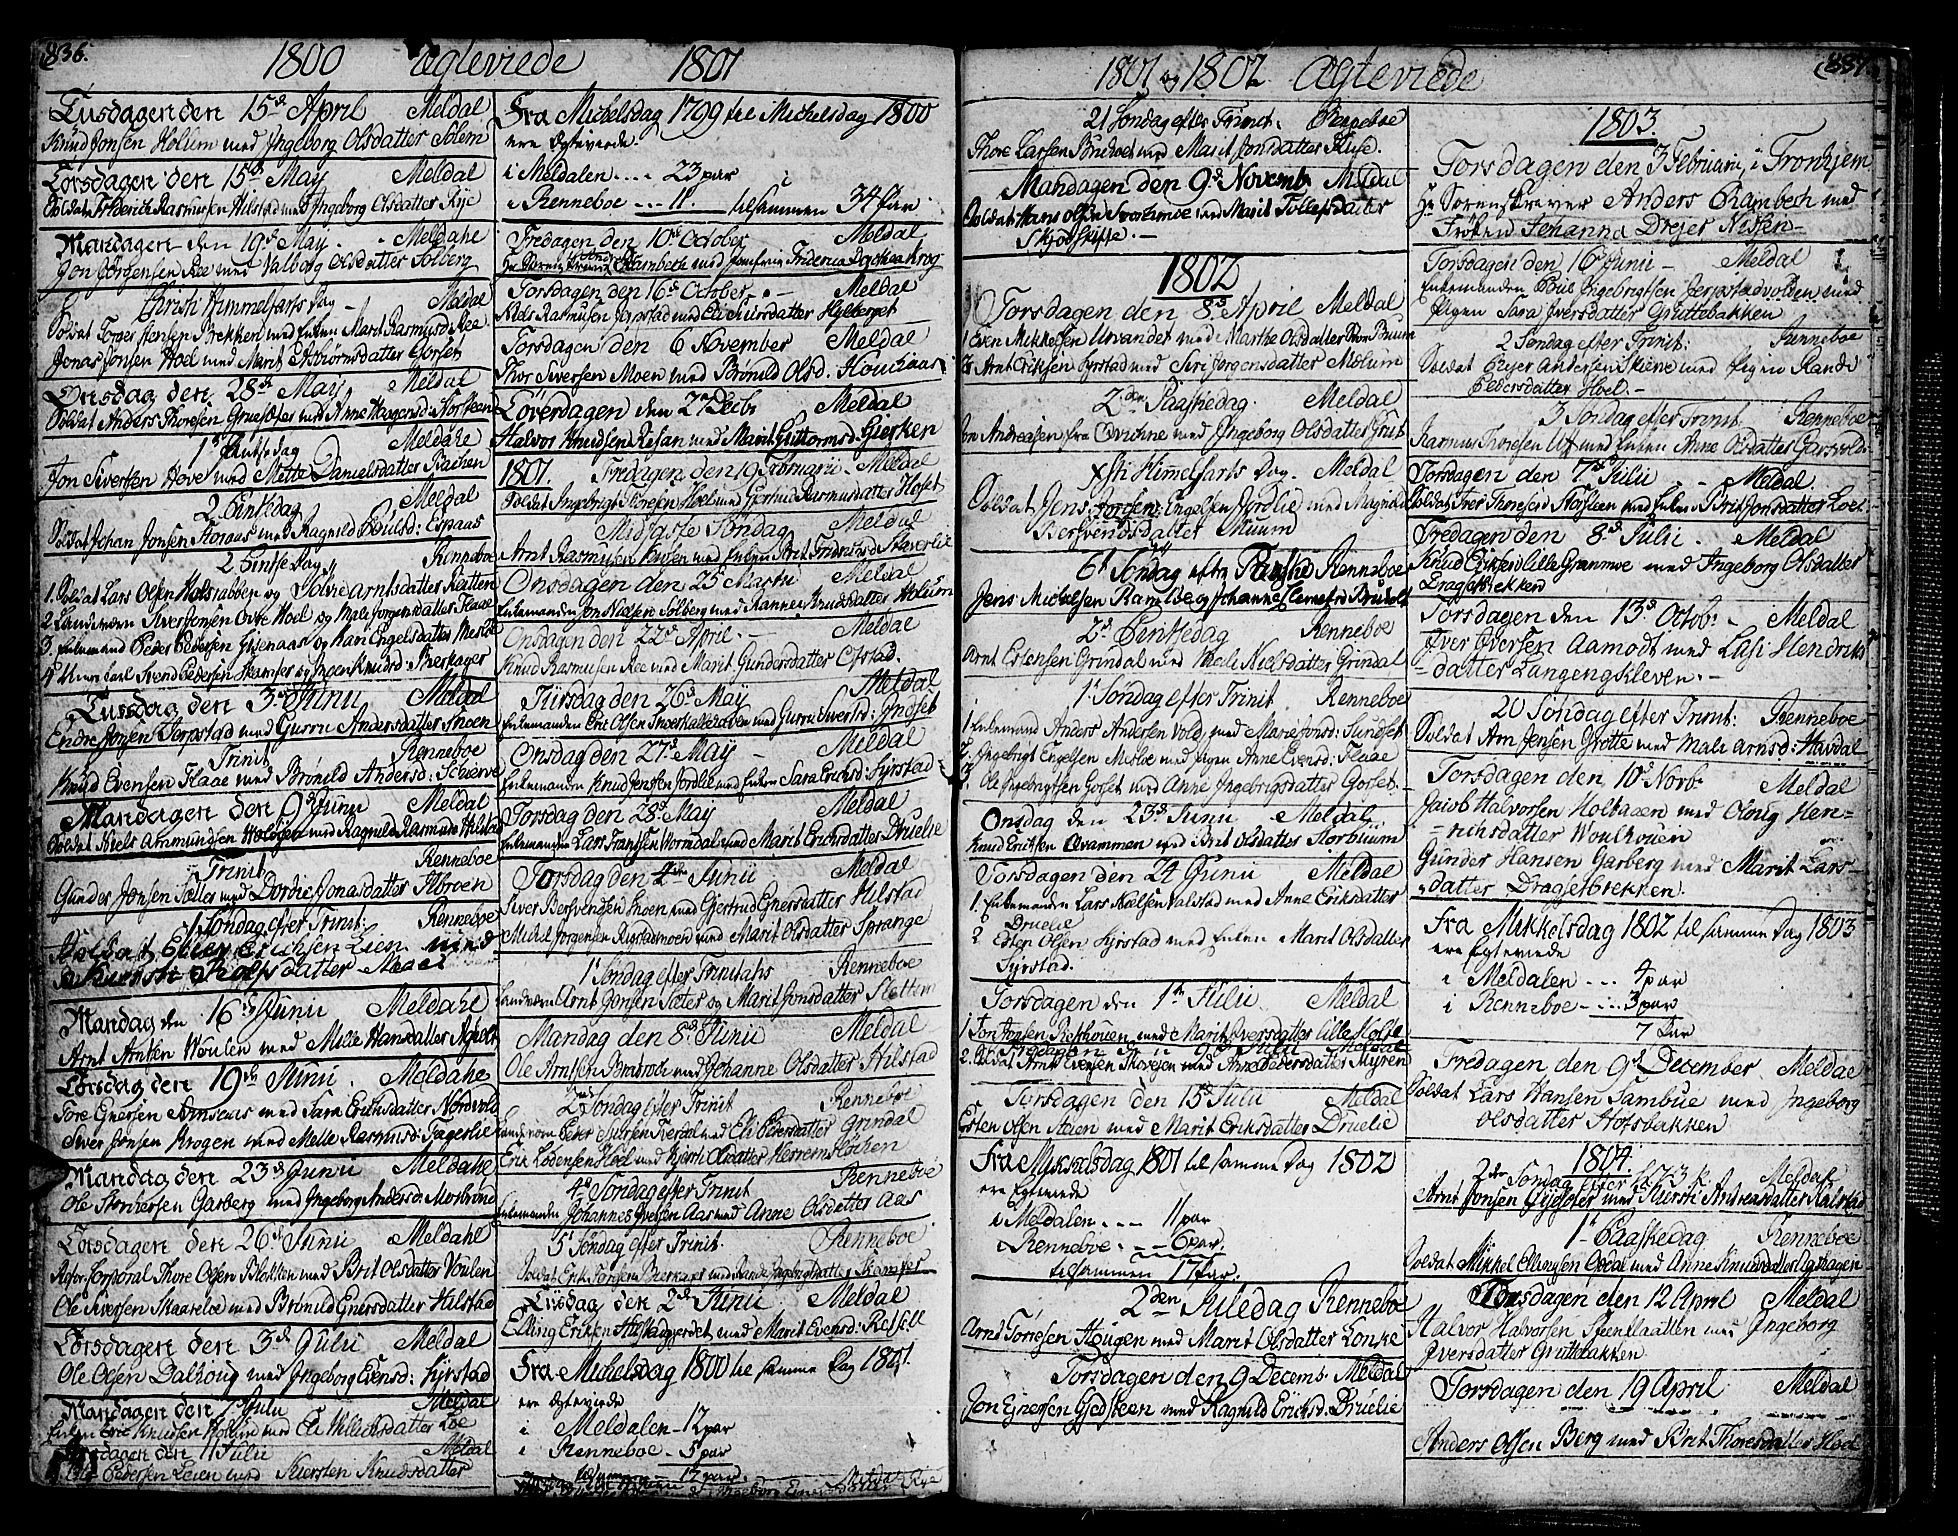 836.
1800 Ægteviede 1801
Tirsdagen den 15de April Meldal
Knud Jonsen Holum med Ingeborg Olsdatter Solem
Torsdagen den 15de May Meldal
Soldat Friderich Rasmusen Hilstad med Ingeborg Olsdatter Rye
Mandagen den 19de May. Meldahl
Jon Jörgensen Ree med Valborg Olsdatter Solberg
Christi Himmelfarts Dag - Meldal
Soldat Torger Jensen Brekken med Enken Marit Rasmusd Ree
Jonas Jonsen Hoel med Marit Estbiörnsdatter Gorset
Onsdag den 28de May. Meldal
Soldat Anders Thoresen Gruesæter med Anne Haagensd: Storsteen
1te Pintsedag Meldahl
Jon Siversen Hove med Mette Danielsdatter Bachen
2 Pintsedag Meldal
Soldat Johan Jonsen Storaas med Ragnild Povelsd: Espaas
2 Pintse Dag Renneboe
1. Soldat Lars Olsen Holsrabben og Solve Arntsdatter Reatten
2 Landeværn Siver Jonsen Hoel og Male Jörgensdatter Flaae
3. Enkemand Peder Pedersen Gisenaas og Kari Engelsdatter Mesloe
4 Svend Pedersen Skamfer og Knudsd: Sterkager
Tirsdag den 3de Junii Meldal
Endre Jonsen Jerpstad med Gurru Andersdatter Snoen
Trinit Renneboe
Knud Evensen Flaae med Brönild Andersd: Schierve
Mandagen den 9de Junii Meldal
Soldat Niels Amundsen med Ragnild Rasmusd: Hilstad
Trinit Renneboe
Gunder Jonsen Sæter med Dordie Jonasdatter Ilbroen
1 Söndag efter Trinit: Renneboe
Soldat Esten Erichsen Lien med
Kiersti Rolfsdatter
Mandag den 16de Junii Meldahl
Arnt Arntsen Woulen med Mille Hansdatter
Torsdag den 19de Junii. Meldahl
Tore Enersen med Sara Erichsdatter Nordvold
Siver Jonsen Krogen med Melle Rasmusd: Fagerlie
Mandagen den 23de Junii Meldahl
Ole Garberg med Ingeborg Andersd: Mosbrönd
Torsdagen den 26de Junii Meldahl
Corporal Thore Olsen med Brit Olsdatter Voulen
Ole Siversen Skaarsloe med Brönild Enersdatter Hilstad
Torsdagen den 3de Julii Meldal
Ole Olsen Dalhoug med Ingeborg Evensd: Syrstad
Mandagen den 7 Julii Meldal
Enken Eric Knudsen Holum med Eli Willichsdatter Loe
11 Julii Meldal
Pedersen Leien med Kiersten Knudsdatter
Fra Michelsdag 1799 til Michelsdag 1800
ere Egteviede.
i Meldalen ... 23 par
i Renneboe ... 11. tilsammen 34 Par
Fredagen den 10de October Meldal
Hr Sorenskriver Rambech med Jomfrue Friderica Krog
Torsdagen den 16de October. - Meldal
Niels Rasmusen Jerpstad med Eli Siursdatter Hylberget
Torsdagen den 6 November Meldal
Thor Siversen Moen med Brönild Olsd. Houkaas
Löverdagen den 27 Decbr Meldal
Halvor Knudsen Resan med Marit Guttormsd: Gierken
1801. Fredagen den 19 Februarii - Meldal
Soldat Ingebrigt Toresen Hoel med Gertrud Rasmusdatter Hoset
Midfaste Söndag Meldal
Arnt Rasmusen med Enken Brit
Onsdagen den 25 Martii Meldal
Enkemanden Jon Nielsen Solberg med Ranne Knudsdatter Holum
Onsdagen den 22de April. - Meldal
Knud Rasmusen Ree med Marit Gundersdatter Ofstad.
Tirsdag den 26de May Meldal
Enkemanden Eric Olsen med Gurru Sivertsd: Gnoset
Onsdag den 27de May - Meldal
Enkemanden Knud Jensen Jordlie med Enken Sara Erichsd: Syrstad
Torsdag den 28de May Meldal
Enkemanden Lars Frantsen Wormdal med Marit Erichsdatter Druelie
Torsdag den 4de Junii Meldal
Siver Bersvendsen Snoen med Gjertrud Enersdatter Hilstad
Michel Jörgensen med Marit Olsdatter Sprange
1 Söndag efter Trinitatis Renneboe
Landværn Arnt Jonsen Sæter og Marit Jonsdatter Sletten
Mandag den 8de Junii Meldal
Ole Arntsen med Johanne Olsdatter Hilstad
2de Söndag efter Trinit Renneboe
Peter med Eli Pedersdatter Grindal
Erik Lodensen Hoel med Kjersti Olsdatter Herrem
4de Söndag efter Trinit Renneboe
Enkemanden Johannes Iversen Aas med Anne Olsdatter Aas
5 Söndag efter Trinit. Renneboe
Soldat Erik med Ingebrigtsdatter Skamfer
Tirsdag den 2de Junii Meldal
Elling Eriksen med Marit Evensd:
Fra Michelsdag 1800 til samme Dag 1801.
ere Egteviede
i Meldalen - 12 par
i Renneboe - 5 par
tilsammen 17 par.
1801 og 1802 Ægteviede
837.
21 Söndag efter Trinit: Renneboe
Thore Larsen med Marit Jonsdatter Kluse.
Mandagen den 9de Novemb: Meldal
Soldat Hans Olsen med Marit Tollefsdatter
Skjodskifte. -
1802
Torsdagen den 8de April Meldal
1 Even Mikkelsen Urvandet med Marthe Olsdatter
2 Arnt Eriksen Syrstad med Siri Jörgensdatter Molum
2den Paaskedag. Meldal
Jon Andreasen fra Qvickne med Ingeborg Olsdatter Grut
Xsti Himelfarts Dag. Meldal
Soldat Jens Engelsen Jordlie med Magnild
Bersvendsdatter Muum
6te Söndag efter Paaske Renneboe
Jens Mickelsen Ramlae og Johanne
2de Pintsedag Renneboe
Arnt Estensen Grindal med Male Nielsdatter Grindal
1te Söndag efter Trinit Renneboe
1 Enkemand Anders Andersen Vold med Marie Jonsd: Sundset
2. Ingebrigt Engelsen Mesloe med Pigen Anne Evensd: Flaae
3. Ole Ingebrigtsen Goset med Anne Ingebrigtsdatter Goset. -
Onsdag den 23de Junii Meldal
Knud Erichsen Qvammen med Brit Olsdatter Storbuum
Torsdagen den 24 Junii Meldal
1. Enkemanden Lars Nielsen Valstad med Anne Eriksdatter
Druelie
2 Esten Olsen Syrstad med Enken Marit Olsdatter
Syrstad.
Torsdagen den 1te Julii Meldal
1 Jon Arntsen med Marit Iversdatter Lille Holte
2. Soldat Arnt Evensen med Anne Pedersdatter Myren
Torsdagen den 15de Julii Meldal
Esten Olsen Aeien med Marit Eriksdatter Druelie
Fra Mikkelsdag 1801 til samme Dag 1802
ere Egteviede
i Meldalen ... 11 par
i Renneboe ... 6 par.
tilsammen 17 Par.
2den Juledag Renneboe
Arnt Toresen Hougen med Marit Olsdatter Lonke
Torsdagen den 9 Decemb. Meldal
Jon Enersen Gjedsteen med Ragnild Ericksd: Druelie
1803.
Torsdagen den 3 Februarii, i Tronhjem
Hr Sorenskriver Anders Rambech med
Fröken Johanna Drejer Nissen-
Torsdagen den 16 Junii - Meldal
Enkemanden Ingebrigtsen Jerpstadvolden med
Pigen Sara Iversdatter Gruttebakken
2 Söndag efter Trinit: Renneboe
Soldat Andersen Skiene med Pigen Randi
Pedersdatter Hoel. -
3 Söndag efter Trinit. Renneboe
Rasmus Thoresen med Enken Anne Olsdatter Garsvold:
Torsdagen den 7de Julii - Meldal.
Soldat Iver Thoresen Storsteen med Enken Brit Jonsdatter Loe.
Fredagen den 8de Julii. - Meldal
Knud Eriksen Lille Gramme med Ingeborg Olsdatter
Dragetbrekken
Torsdagen den 13de Octob: - Meldal
Iver Iversen Aamodt med Lusi Hendriks
-datter Langengkleven. -
20 Söndag efter Trinit: Renneboe
Soldat Arn Jensen Grotte med Male Arnsd: Havdal
Torsdagen den 10de Novb: Meldal
Jacob Halvorsen Holbaaen med Oloug Hen=
=richsdatter Woulhouen
Gunder Hansen Garberg med Marit Lars=
=datter Dragetbrekken.
Fra Mikkelsdag 1802 til samme Dag 1803
ere Egteviede
i Meldalen ... 4 par
i Renneboe ... 3 par
7 Par
Fredagen den 9de December Meldal
Soldat Lars Hansen Sambue med Ingeborg
Olsdatter Hofsbakken
1804.
2den Söndag efter H. 3 K. Meldal
Arnt Jonsen med Kiersti Andreasdatter Kalstad
1te Paaskedag Renneboe
Soldat Mikkel Ellingsen med Anne Knudsdatter
Torsdagen den 12 April Meldal
Halvor Halvorsen med Ingeborg
Iversdatter Gruttebakken
Torsdagen den 19 April Meldal
Anders Olsen Berg med Brit Thoresdatter Hoel